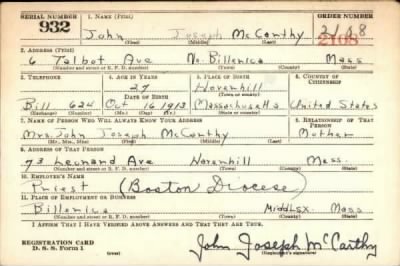 SERIAL NUMBER 1. NAME (Print) ORDER NUMBER
932 John Joseph McCarthy 2168
(First) (Middle) (Last) 2108
2. ADDRESS (Print)
6 Talbot Ave No. Billerica Mass
(Number and street or R. F. D. number) (Town) (County) (State)
3. TELEPHONE 4. AGE IN YEARS 5. PLACE OF BIRTH 6. COUNTRY OF CITIZENSHIP
27 Haverhill
DATE OF BIRTH (Town or county)
Bill 624 Oct 16 1913 Massachusetts United States
(Exchange) (Number) (Mo.) (Day) (Yr.) (State or country)
7. NAME OF PERSON WHO WILL ALWAYS KNOW YOUR ADDRESS 8. RELATIONSHIP OF THAT PERSON
Mrs. John Joseph McCarthy Mother
(Mr., Mrs., Miss) (First) (Middle) (Last)
9. ADDRESS OF THAT PERSON
73 Leonard Ave Haverhill Mass.
(Number and street or R. F. D. number) (Town) (County) (State)
10. EMPLOYER'S NAME
Priest (Boston Diocese)
11. PLACE OF EMPLOYMENT OR BUSINESS
Billerica Middlsx. Mass
(Number and street or R. F. D. number) (Town) (County) (State)
I AFFIRM THAT I HAVE VERIFIED ABOVE ANSWERS AND THAT THEY ARE TRUE.
REGISTRATION CARD
D. S. S. Form 1 John Joseph McCarthy
(over) (Registrant's signature)